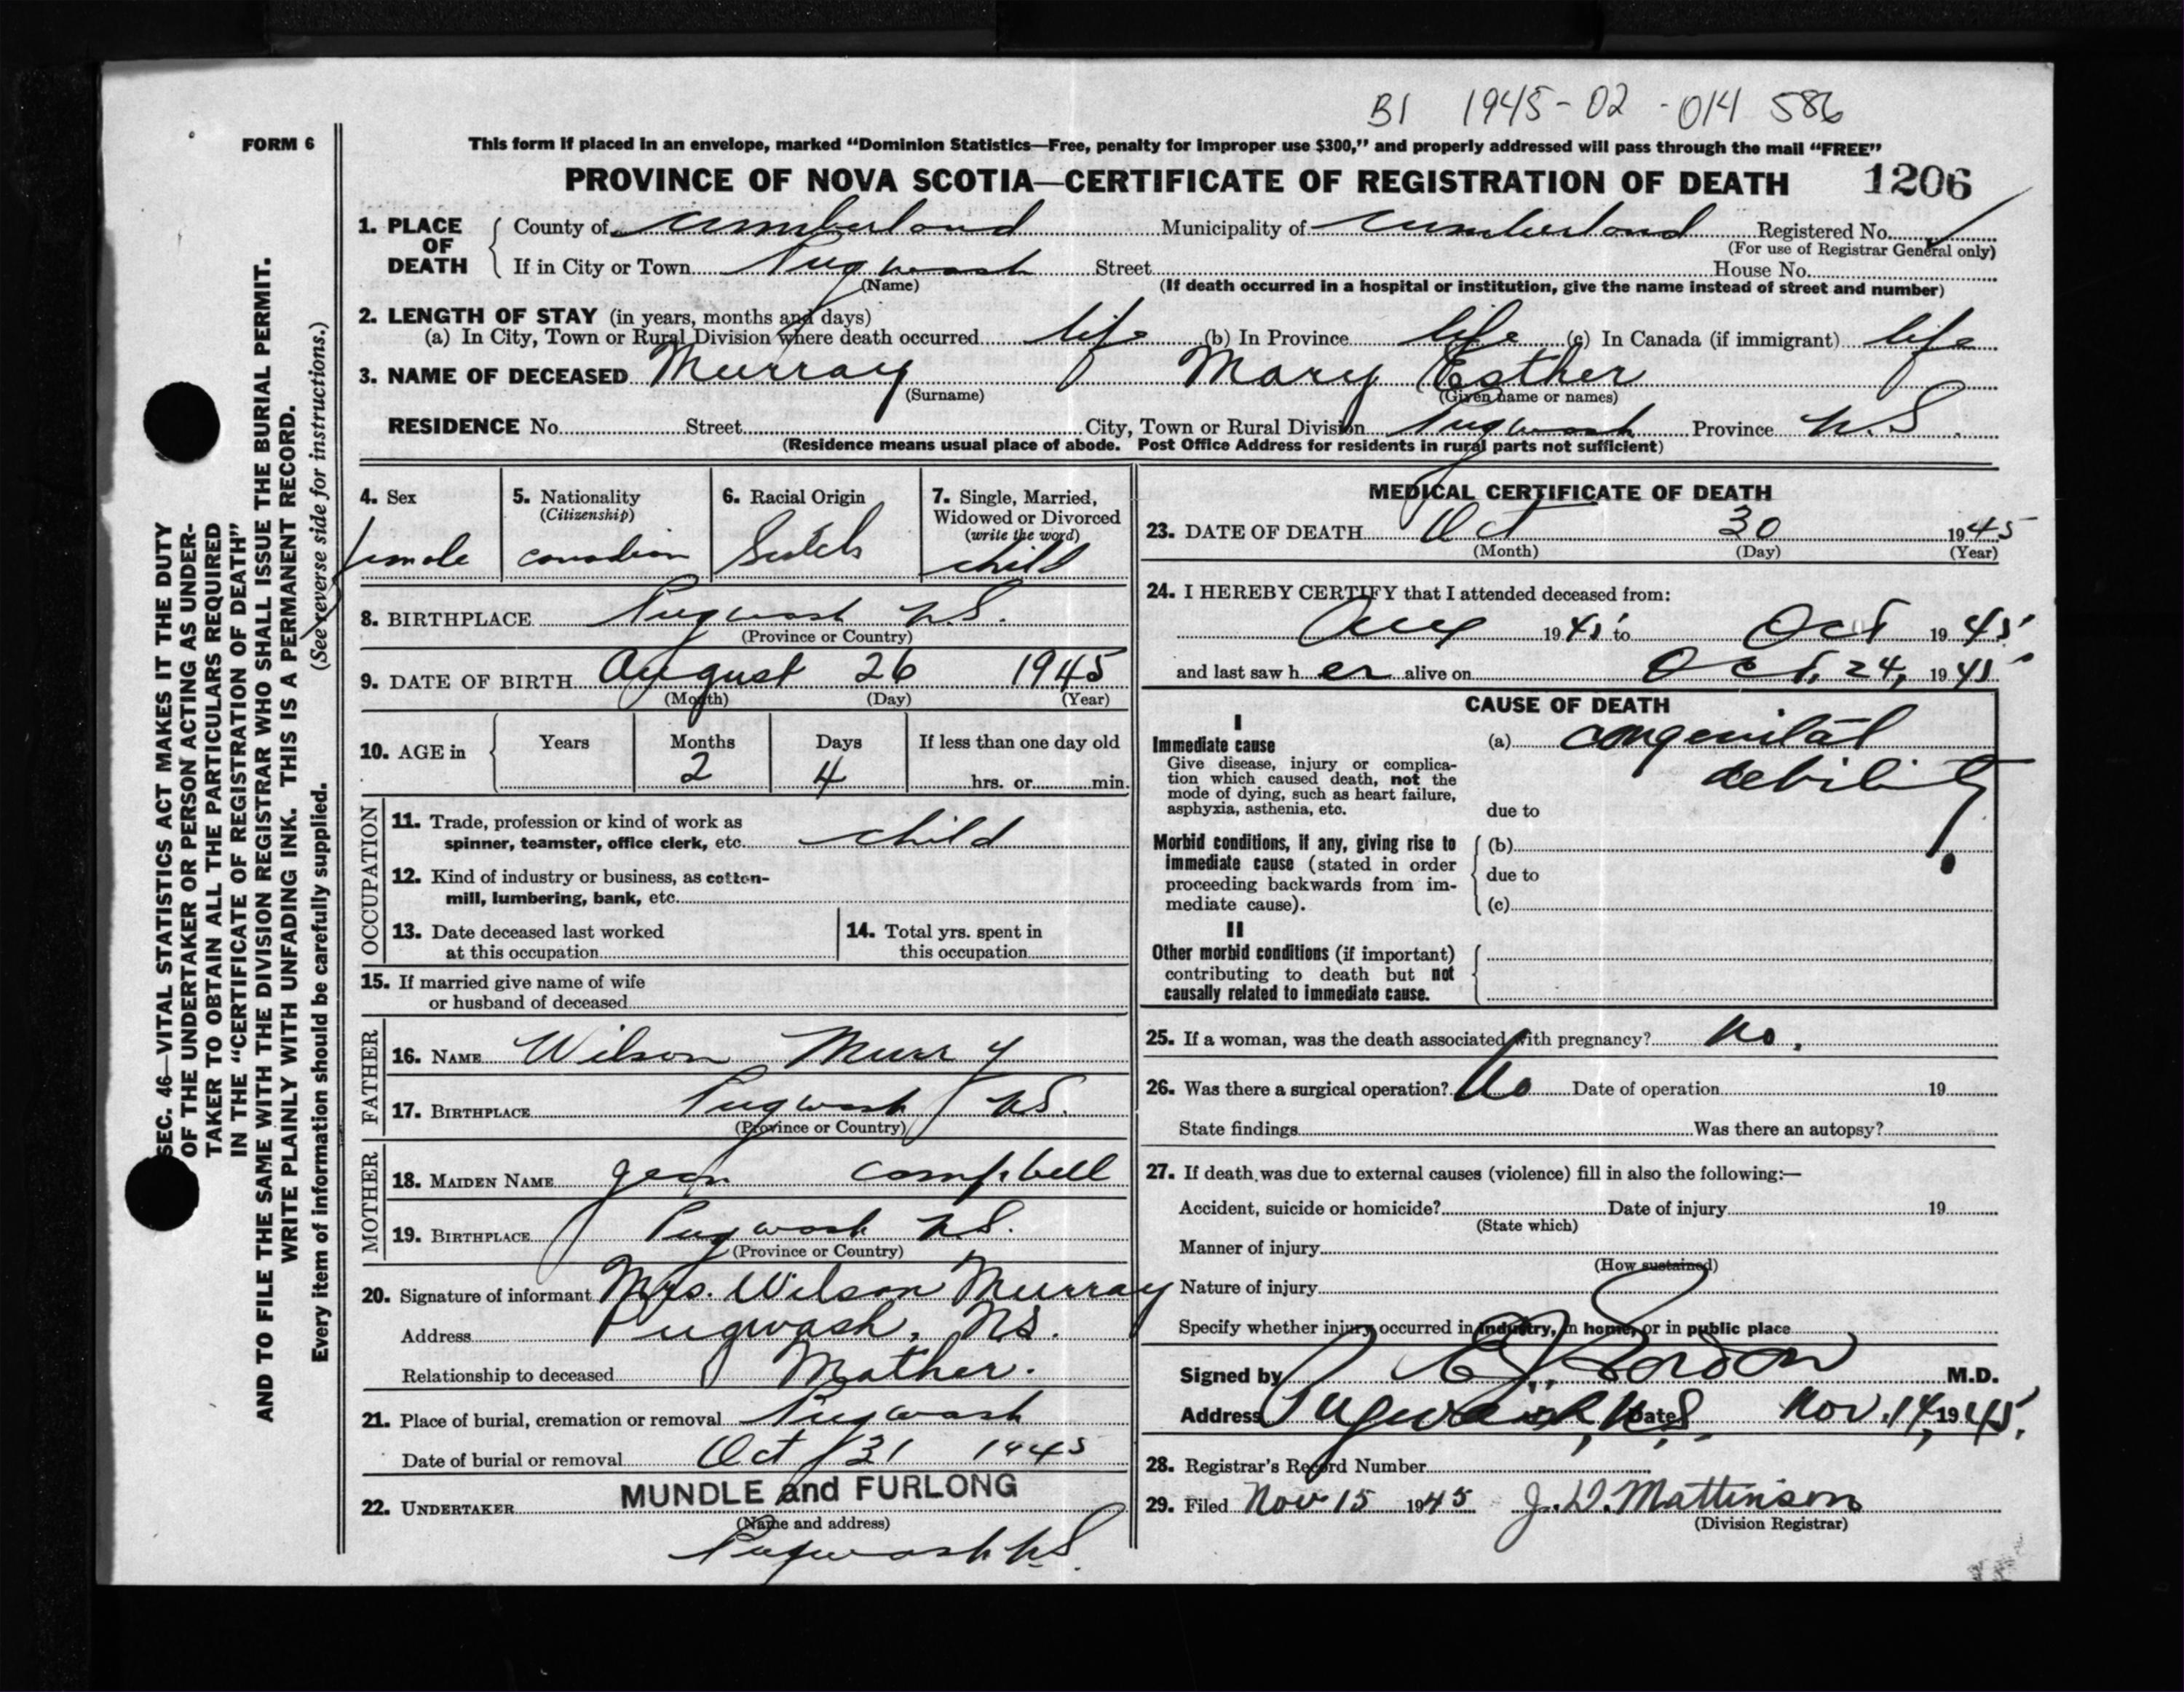 B1 1945-02-014586
FORM 6
This form if placed in an envelope, marked "Dominion Statistics—Free, penalty for improper use $300," and properly addressed will pass through the mail "FREE"
PROVINCE OF NOVA SCOTIA—CERTIFICATE OF REGISTRATION OF DEATH 1206
SEC. 46—VITAL STATISTICS ACT MAKES IT THE DUTY
OF THE UNDERTAKER OR PERSON ACTING AS UNDER-
TAKER TO OBTAIN ALL THE PARTICULARS REQUIRED
IN THE "CERTIFICATE OF REGISTRATION OF DEATH"
AND TO FILE THE SAME WITH THE DIVISION REGISTRAR WHO SHALL ISSUE THE BURIAL PERMIT.
WRITE PLAINLY WITH UNFADING INK. THIS IS A PERMANENT RECORD.
Every item of information should be carefully supplied. (See reverse side for instructions.)
1. PLACE OF DEATH
County of Cumberland Municipality of Cumberland Registered No.
(For use of Registrar General only)
If in City or Town Pugwash Street House No.
(Name) (If death occurred in a hospital or institution, give the name instead of street and number)
2. LENGTH OF STAY (in years, months and days)
(a) In City, Town or Rural Division where death occurred life (b) In Province life (c) In Canada (if immigrant) life
3. NAME OF DECEASED Murray Mary Esther
(Surname) (Given name or names)
RESIDENCE No. Street City, Town or Rural Division Pugwash Province N.S.
(Residence means usual place of abode. Post Office Address for residents in rural parts not sufficient)
4. Sex
female
5. Nationality
(Citizenship)
canadian
6. Racial Origin
Scotch
7. Single, Married,
Widowed or Divorced
(write the word)
child
8. BIRTHPLACE Pugwash N.S.
(Province or Country)
9. DATE OF BIRTH August 26 1945
(Month) (Day) (Year)
10. AGE in Years Months Days If less than one day old
2 4 hrs. or min.
OCCUPATION
11. Trade, profession or kind of work as
spinner, teamster, office clerk, etc. child
12. Kind of industry or business, as cotton-
mill, lumbering, bank, etc.
13. Date deceased last worked
at this occupation
14. Total yrs. spent in
this occupation
15. If married give name of wife
or husband of deceased
FATHER
16. NAME Wilson Murry
17. BIRTHPLACE Pugwash N.S.
(Province or Country)
MOTHER
18. MAIDEN NAME Jean Campbell
19. BIRTHPLACE Pugwash N.S.
(Province or Country)
20. Signature of informant Mrs. Wilson Murray
Address Pugwash, N.S.
Relationship to deceased Mother.
21. Place of burial, cremation or removal Pugwash
Date of burial or removal Oct 31 1945
22. UNDERTAKER MUNDLE and FURLONG
(Name and address)
Pugwash N.S.
MEDICAL CERTIFICATE OF DEATH
23. DATE OF DEATH Oct 30 1945
(Month) (Day) (Year)
24. I HEREBY CERTIFY that I attended deceased from:
Aug 1945 to Oct 1945
and last saw her alive on Oct. 24, 1945
CAUSE OF DEATH
I
Immediate cause
Give disease, injury or complica-
tion which caused death, not the
mode of dying, such as heart failure,
asphyxia, asthenia, etc.
(a) congenital
debility
due to
Morbid conditions, if any, giving rise to
immediate cause (stated in order
proceeding backwards from im-
mediate cause).
(b)
due to
(c)
II
Other morbid conditions (if important)
contributing to death but not
causally related to immediate cause.
25. If a woman, was the death associated with pregnancy? No.
26. Was there a surgical operation? No Date of operation 19
State findings Was there an autopsy?
27. If death was due to external causes (violence) fill in also the following:—
Accident, suicide or homicide? Date of injury 19
(State which)
Manner of injury
(How sustained)
Nature of injury
Specify whether injury occurred in industry, in home, or in public place
Signed by Gordon M.D.
Address Pugwash, N.S. Date Nov. 14, 1945.
28. Registrar's Record Number
29. Filed Nov 15 1945 J. D. Mattinson
(Division Registrar)